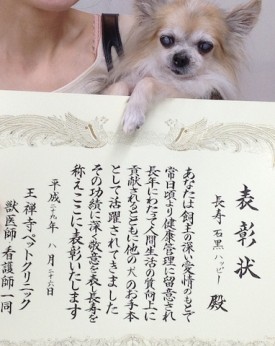 表彰状
長寿 石黒 ハッピー 殿
あなたは飼主の深い愛情のもとで
常日頃より健康管理に留意され
長年にわたって人間生活の質向上に
貢献されるとともに他の犬のお手本
として活躍されてきました
その功績に深い敬意を表し長寿を
称えここに表彰いたします
平成二十九年 八月二十六日
王禅寺ペットクリニック
獣医師 看護師一同